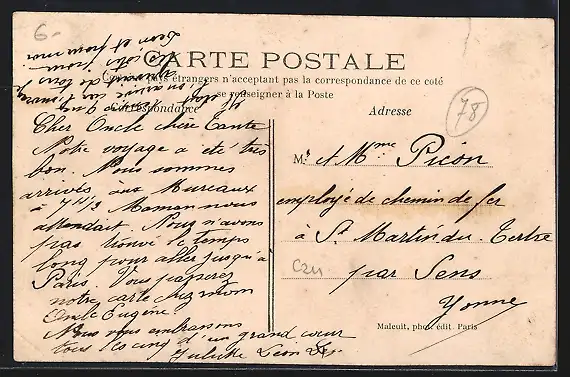 6-
CARTE POSTALE
pays étrangers n'acceptant pas la correspondance de ce coté
se renseigner à la Poste
Correspondance
Adresse
78
Cher Oncle chère Tante
Notre voyage a été très
bon. Nous sommes
arrivés aux Mureaux
à 7 h 1/2 Maman nous
attendait. Nous n'avons
pas trouvé le temps
long pour aller jusqu'à
Paris. Vous passerez
notre carte chez mon
Oncle Eugène.
Nous vous embrassons
tous les cinq d'un grand cœur
Juliette Léon
M. et Mme Picon
employé de chemin de fer
à St Martin du Tertre
par Sens
Yonne
Maleuit, phot. édit. Paris
Léon et pour moi